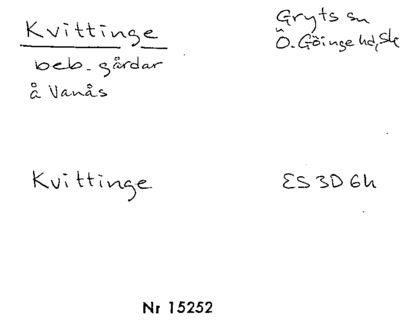 Kvittinge
beb. gårdar
å Vanås
Gryts sn
Ö. Göinge hd, Sk
Kvittinge
ES 3D 6h
Nr 15252